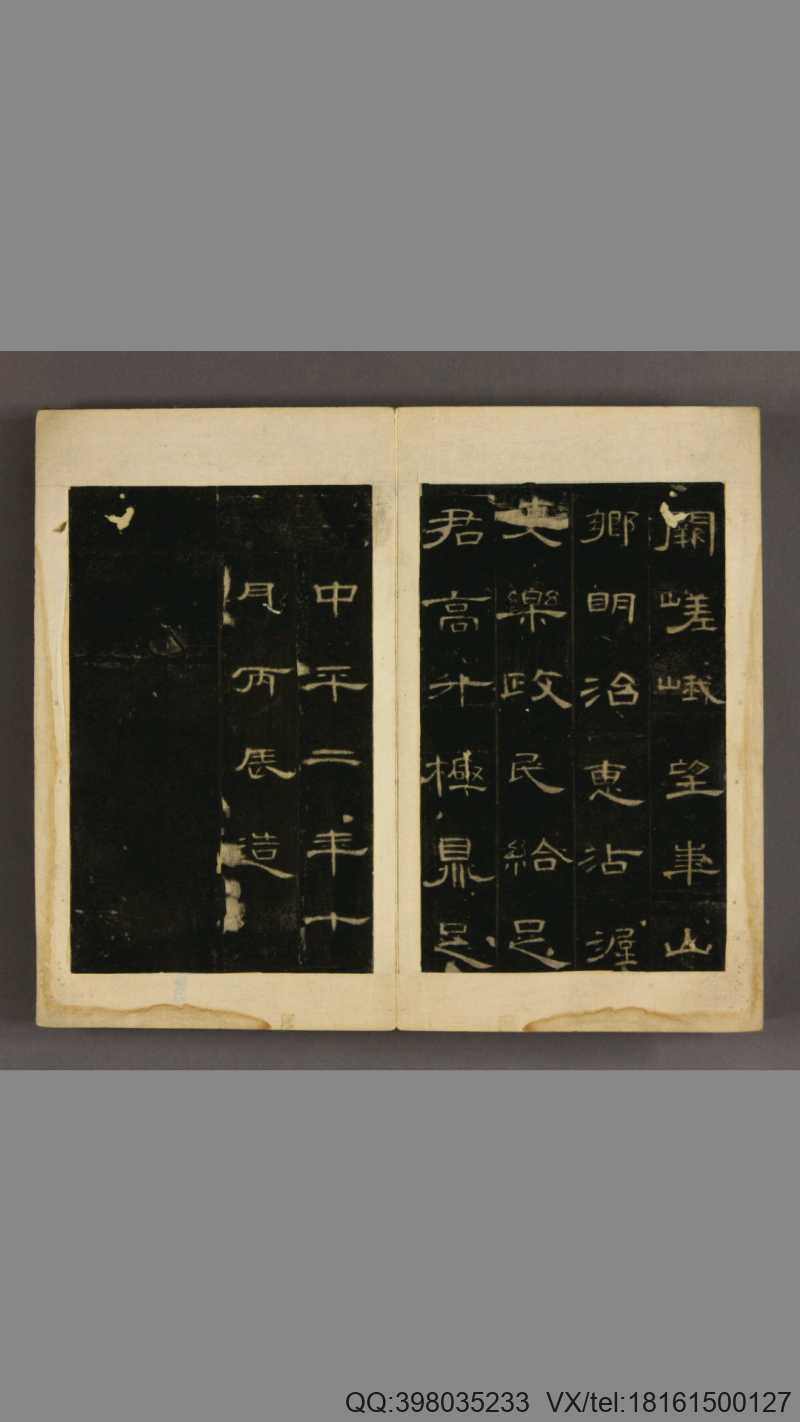 闕嵯峨望華山
鄉明治惠沾渥
吏樂政民給足
君高升極鼎足
中平二年十
月丙辰造
QQ:398035233 VX/tel:18161500127